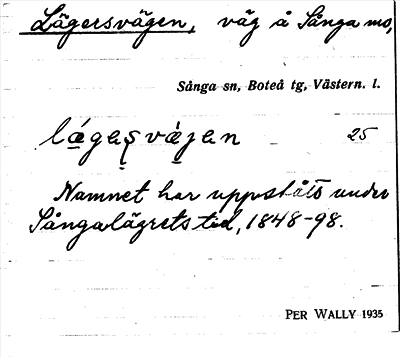 Lägersvägen, väg å Sånga mo,
Sånga sn, Boteå tg, Västern. l.
25
Namnet har uppståtts under
Sångalägrets tid, 1848-98.
PER WALLY 1935